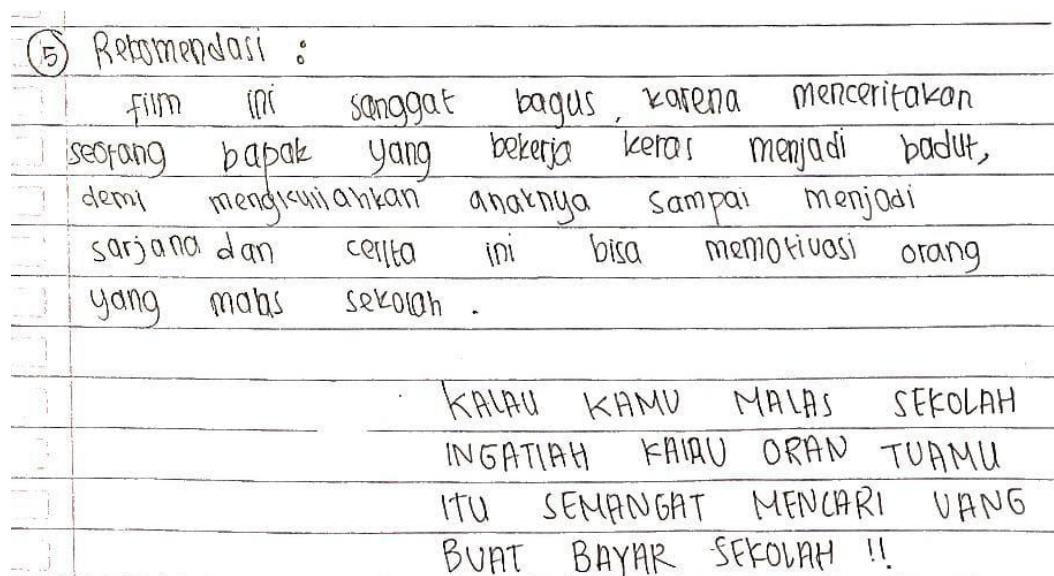 5 Rekomendasi :
film ini sanggat bagus, karena menceritakan
seorang bapak yang bekerja keras menjadi badut,
demi mengkuliahkan anaknya sampai menjadi
sarjana dan cerita ini bisa memotivasi orang
yang malas sekolah .
KALAU KAMU MALAS SEKOLAH
INGATLAH KALAU ORAN TUAMU
ITU SEMANGAT MENCARI UANG
BUAT BAYAR SEKOLAH !!